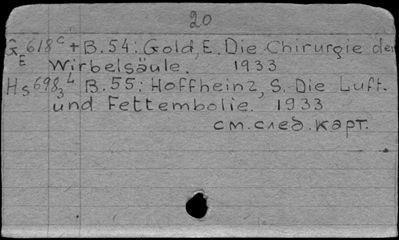 20
G E 618 c + B. 54: Gold, E. Die Chirurgie der
Wirbelsäule. 1933
Hs 698 4/3 B. 55: Hoffheinz, S. Die Luft-
und Fettembolie. 1933
см. след. карт.